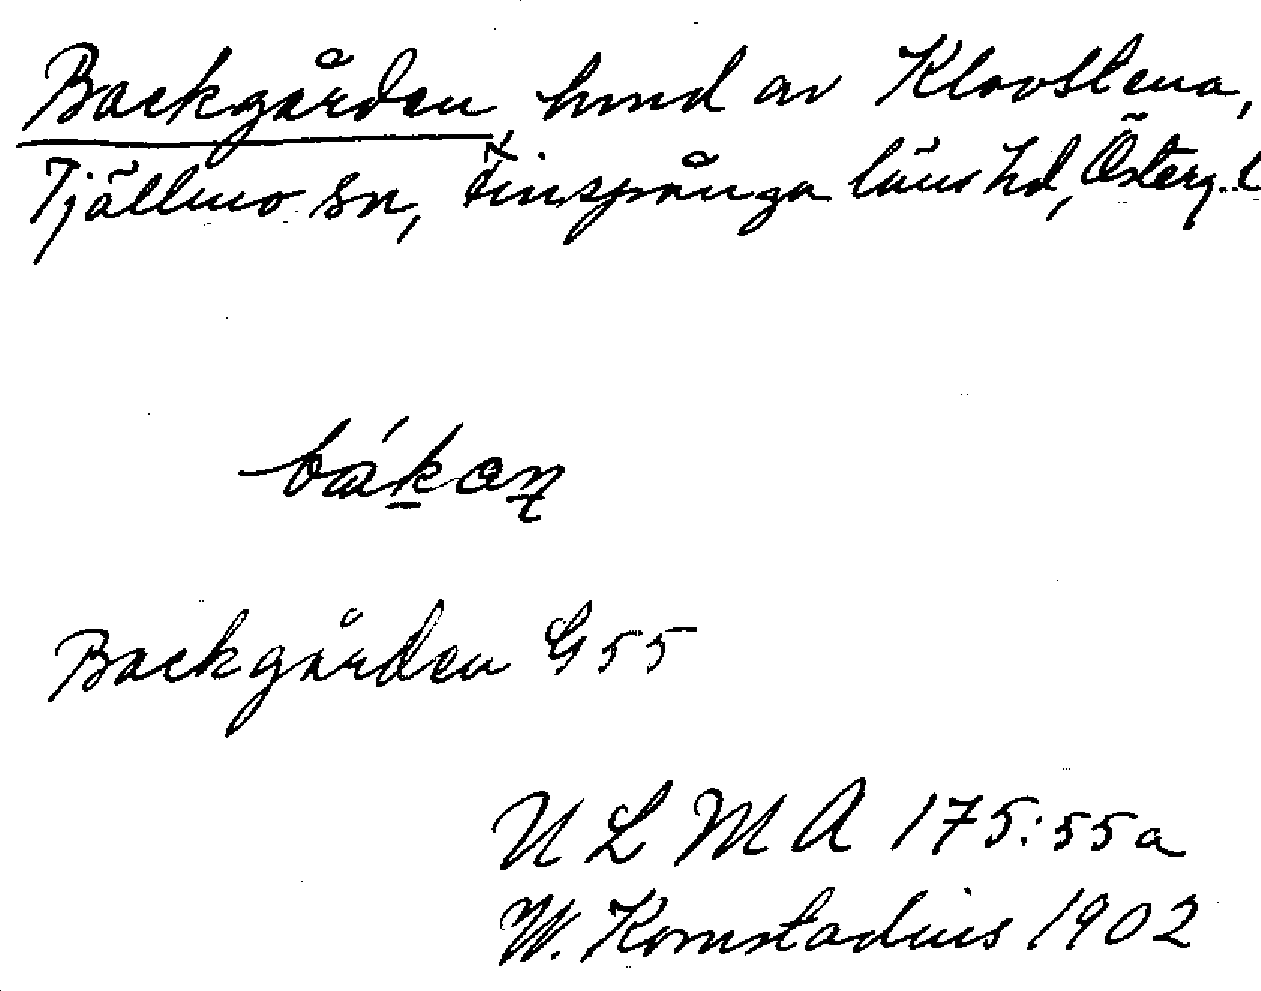 Backgården, hmd av Klovstena,
Tjällmo sn, Finspånga läns hd, Österg. l
bákan
Backgården G 55
ULMA 175:55a
W. Kornstadius 1902